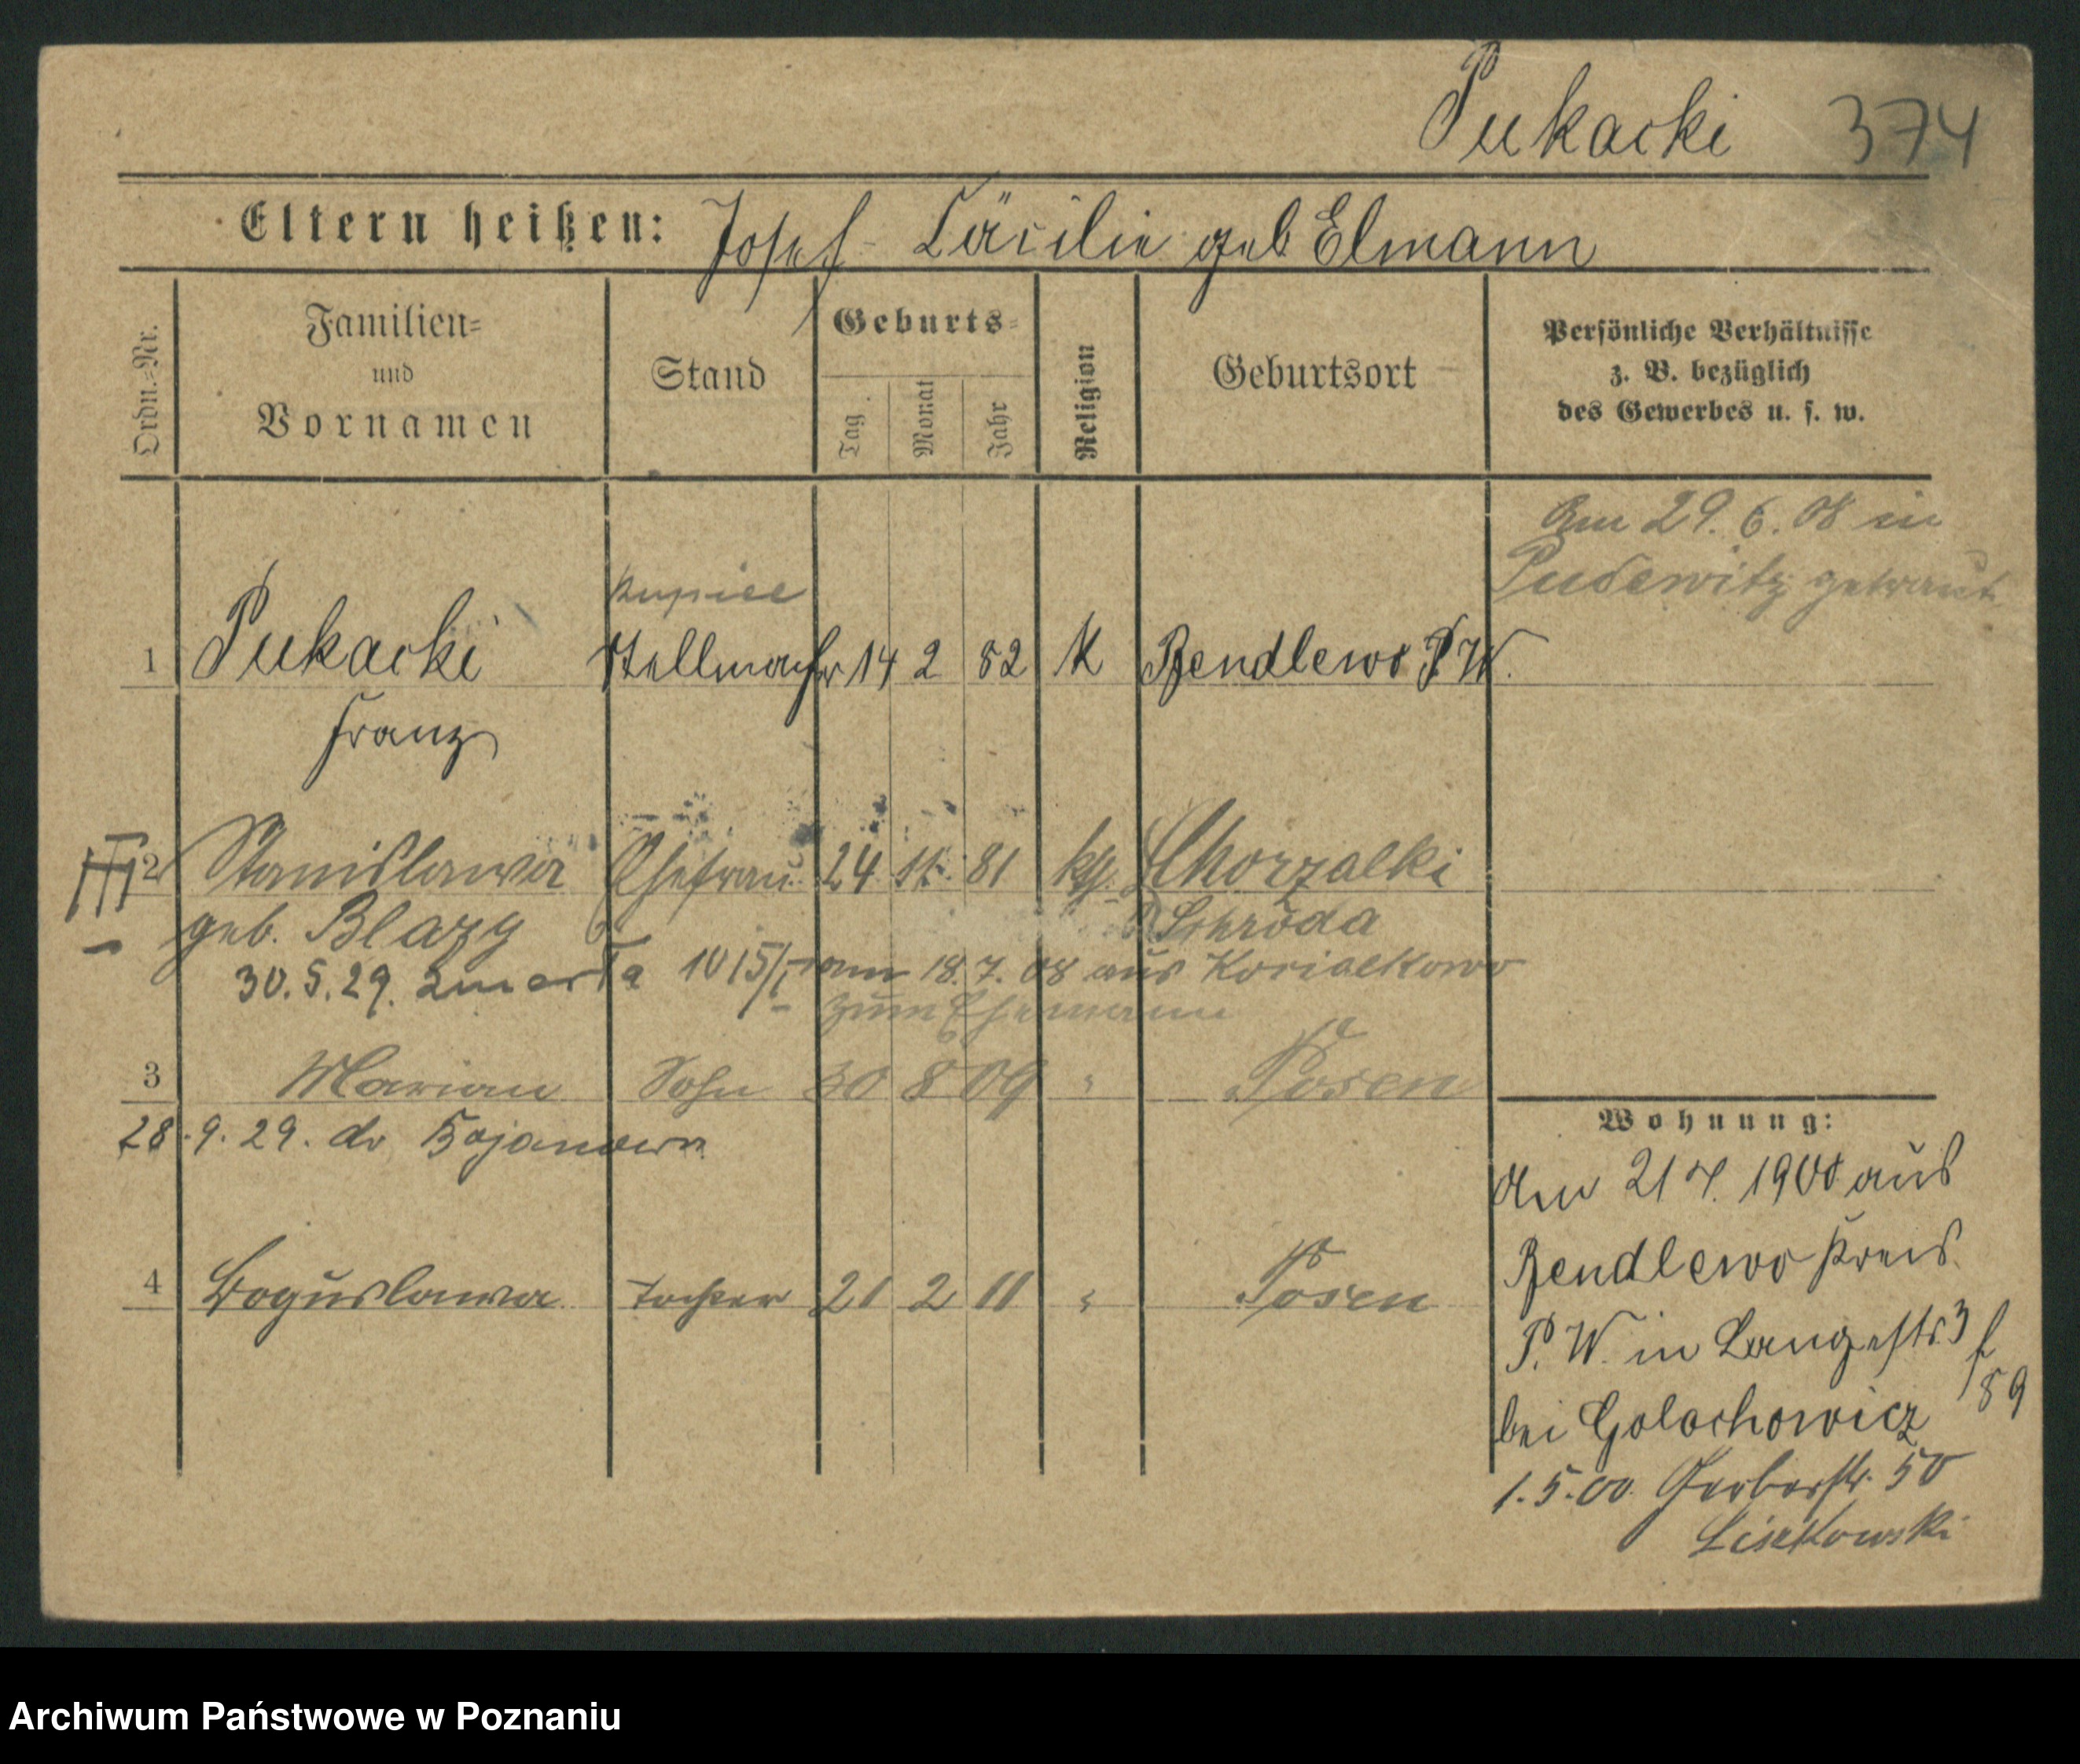 Pukacki 374
Eltern heißen: Josef Cäcilie geb Elmann
Ordn.-Nr.
Familien-
und
Vornamen
Stand
Geburts-
Tag.
Monat
Jahr
Religion
Geburtsort
Persönliche Verhältnisse
z. B. bezüglich
des Gewerbes u. s. w.
Am 29. 6. 08 in
Pudewitz getraut
kupiec
1 Pukacki Stellmacher 14 2 82 K Rendlewo P. W.
Franz
III 2 Stanislawa Ehefrau 24 11. 81 kth. Chorzalki
geb. Blazy Schroda
30.5.29. zmarła 1015/I am 18. 7. 08 aus
zum Ehemann
3 Marian Sohn 30 8 09 " Posen
28.9.29. do Bojanowa
4 Boguslawa Tochter 21 2 11 " Posen
Wohnung:
Am 21 4. 1900 aus
Rendlewo Kreis
P. W. in Langestr. 3
bei Golachowicz
89
1.5.00 Gerberstr. 50
Lisekowski
Archiwum Państwowe w Poznaniu